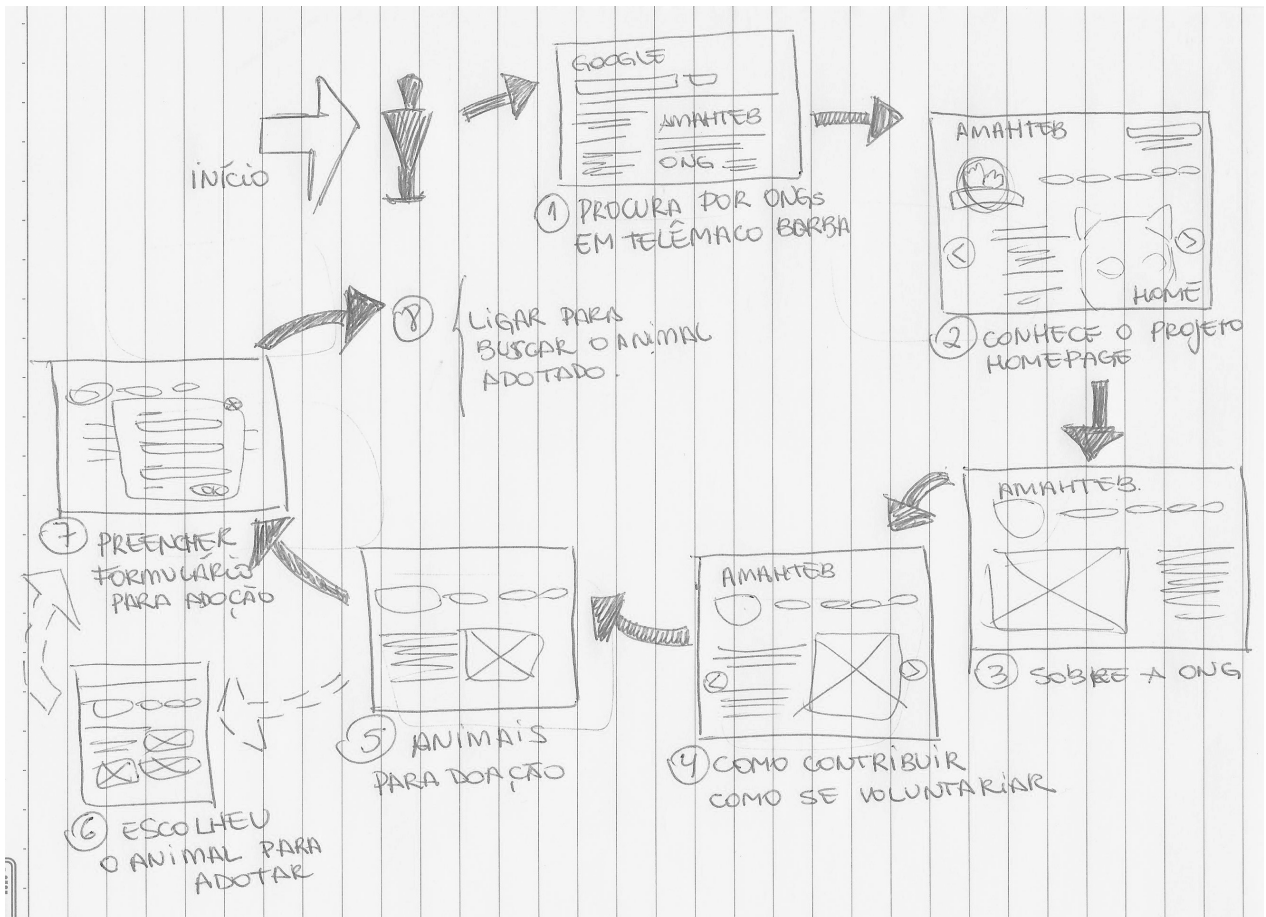 INÍCIO
GOOGLE
AMAHTEB
ONG
1 PROCURA POR ONGs
EM TELÊMACO BORBA
AMAHTEB
<
>
HOME
2 CONHECE O PROJETO
HOMEPAGE
AMAHTEB.
3 SOBRE A ONG
AMAHTEB
<
>
4 COMO CONTRIBUIR
COMO SE VOLUNTARIAR
5 ANIMAIS
PARA DOAÇÃO
6 ESCOLHEU
O ANIMAL PARA
ADOTAR
7 PREENCHER
FORMULÁRIO
PARA ADOÇÃO
8 LIGAR PARA
BUSCAR O ANIMAL
ADOTADO.